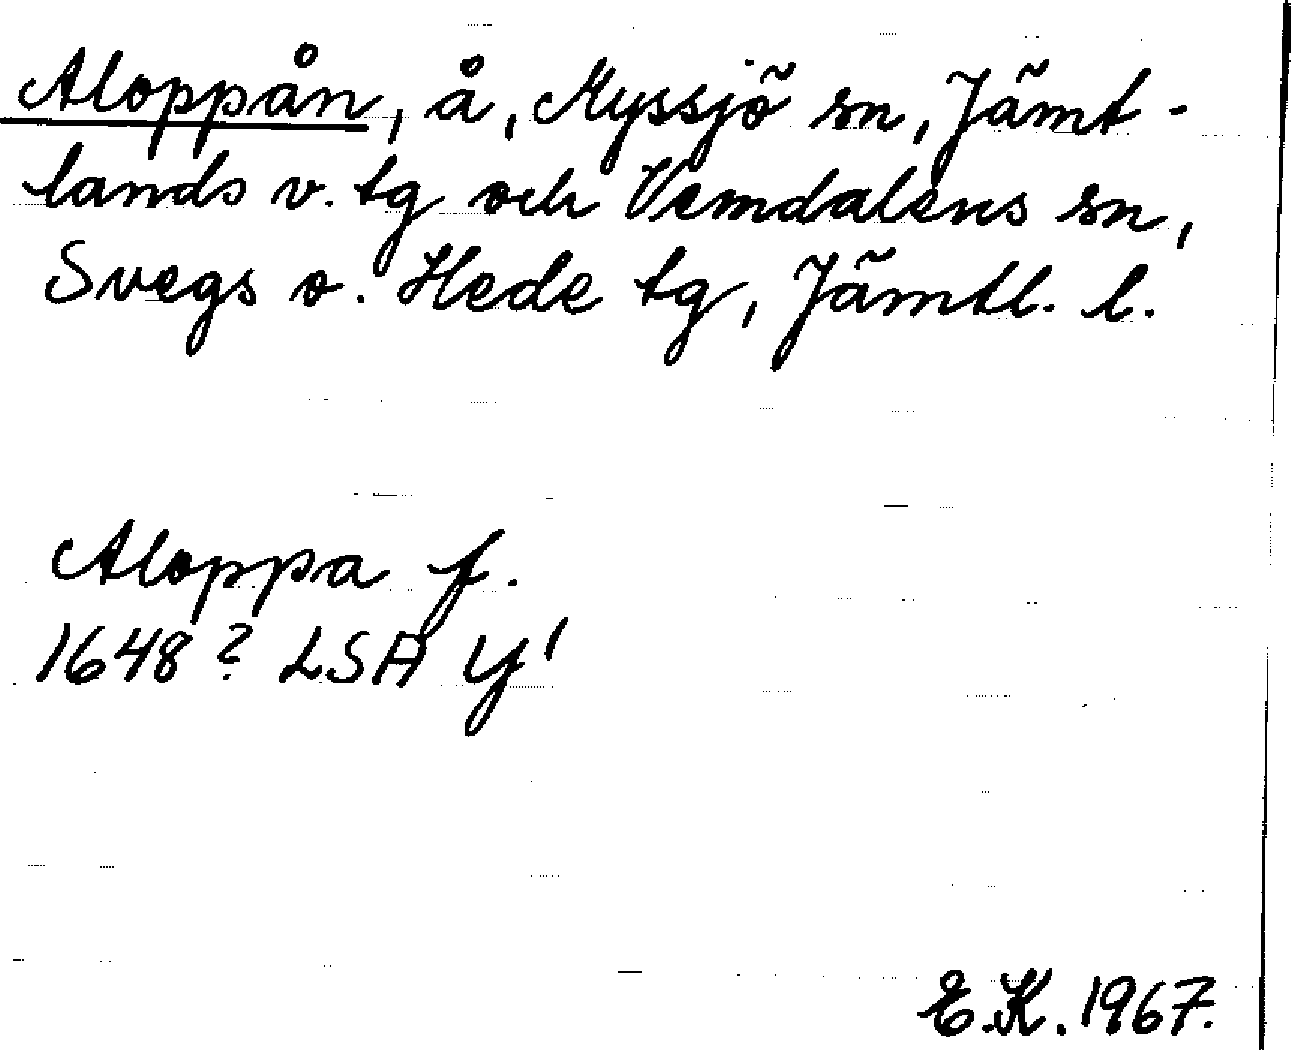 Aloppån, å, Myssjö sn, Jämt-
lands v. tg och Vemdalens sn,
Svegs o. Hede tg, Jämtl. l.
Aloppa f.
1648? LSA Y1
E.K. 1967.